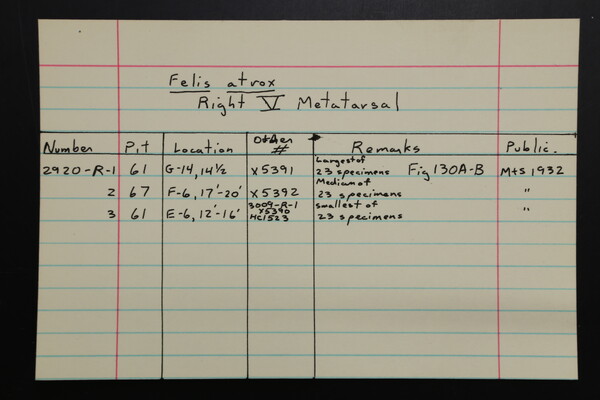 Felis atrox
Right V Metatarsal
Number Pit Location Other # Remarks Public.
2920-R-1 61 G-14, 14½ X5391 Largest of 23 specimens Fig 130A-B M+S 1932
2 67 F-6, 17'-20' X5392 Median of 23 specimens "
3 61 E-6, 12'-16' 3009-R-1 X5390 HC1523 smallest of 23 specimens "